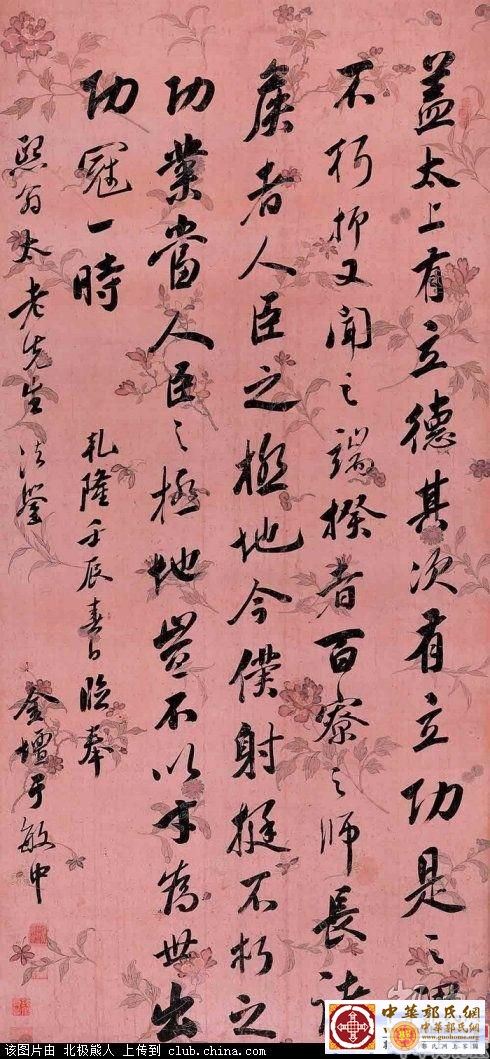 蓋太上有立德其次有立功是之
不朽抑又聞之端揆者百寮之師長諸
矦者人臣之極地今僕射挺不朽之
功業當人臣之極地豈不以才為世出
功冠一時 乾隆壬辰春日臨奉
熙翁太老先生法鑒 金壇于敏中
中華郭氏網
www.guohome.org
该图片由 北极熊人 上传到 club.china.com